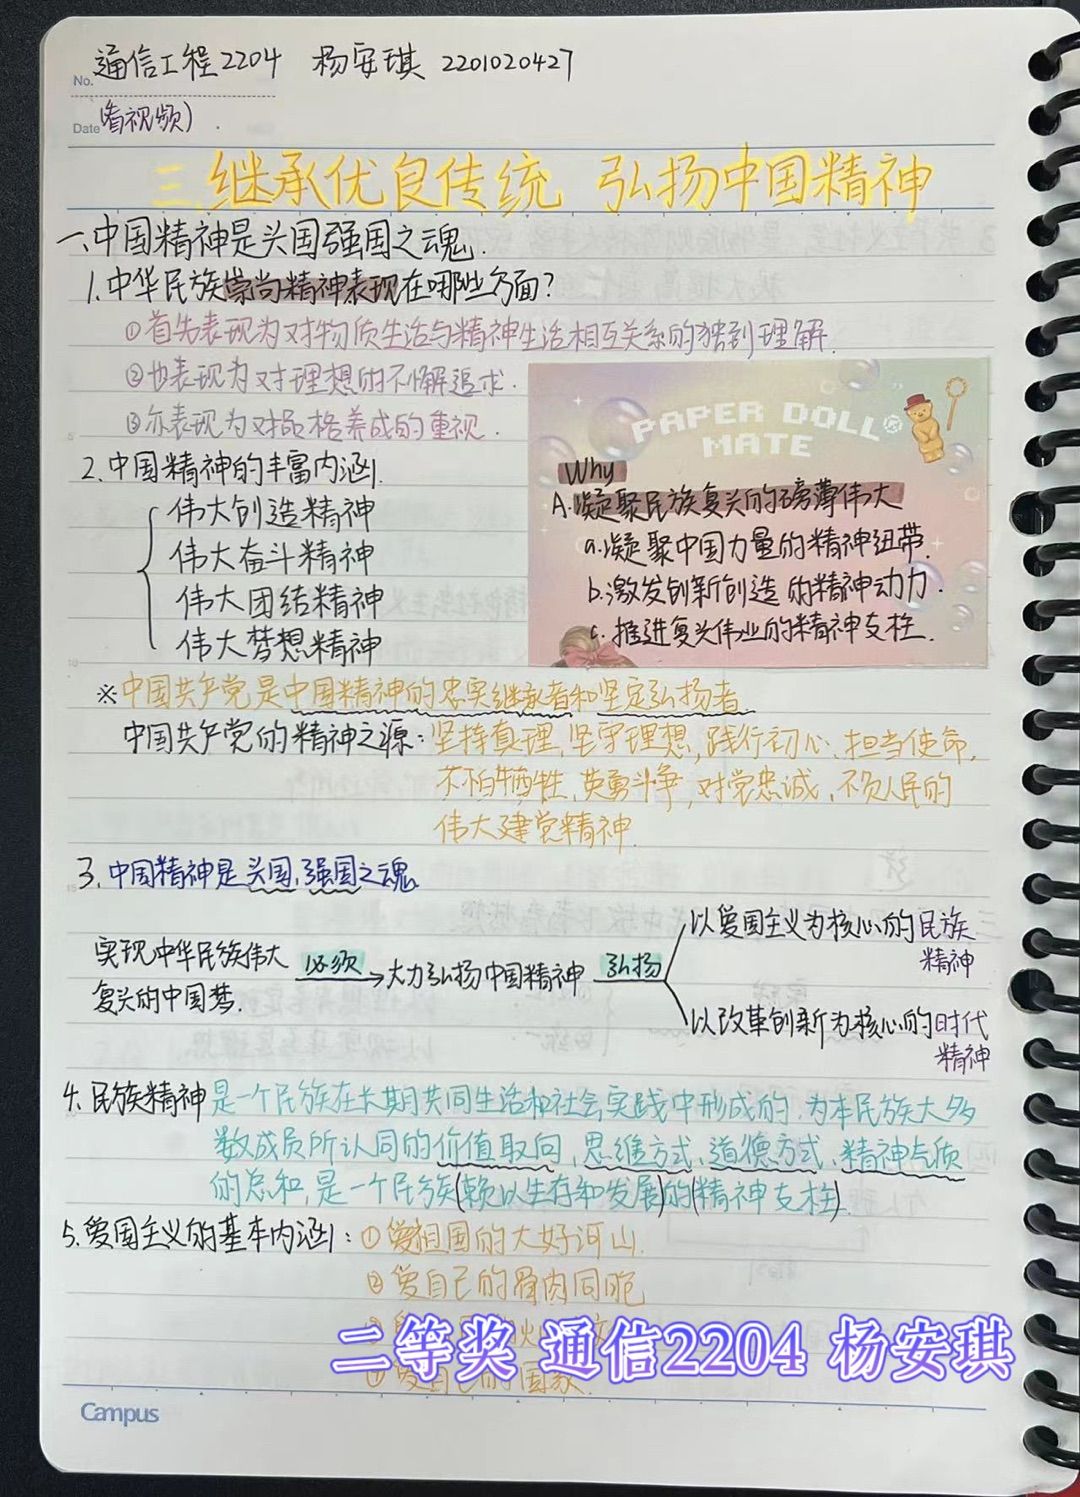 No. 通信工程2204 杨安琪 2201020427
Date (看视频).
三.继承优良传统 弘扬中国精神
一.中国精神是兴国强国之魂.
1.中华民族崇尚精神表现在哪些方面?
①首先表现为对物质生活与精神生活相互关系的独到理解.
②也表现为对理想的不懈追求.
③亦表现为对品格养成的重视.
2.中国精神的丰富内涵.
伟大创造精神
伟大奋斗精神
伟大团结精神
伟大梦想精神
PAPER DOLL®
MATE
Why
A.凝聚民族复兴的磅薄伟大
a.凝聚中国力量的精神纽带.
b.激发创新创造的精神动力.
c.推进复兴伟业的精神支柱.
※中国共产党是中国精神的忠实继承者和坚定弘扬者.
中国共产党的精神之源:坚持真理,坚守理想,践行初心、担当使命,
不怕牺牲、英勇斗争,对党忠诚、不负人民的
伟大建党精神.
3.中国精神是兴国、强国之魂
实现中华民族伟大
复兴的中国梦.
必须
大力弘扬中国精神
弘扬
以爱国主义为核心的民族
精神
以改革创新为核心的时代
精神
4.民族精神是一个民族在长期共同生活和社会实践中形成的,为本民族大多
数成员所认同的价值取向、思维方式、道德方式、精神气质
的总和,是一个民族(赖以生存和发展)的(精神支柱).
5.爱国主义的基本内涵:①爱祖国的大好河山.
②爱自己的骨肉同胞
爱自己的国家.
二等奖 通信2204 杨安琪
Campus